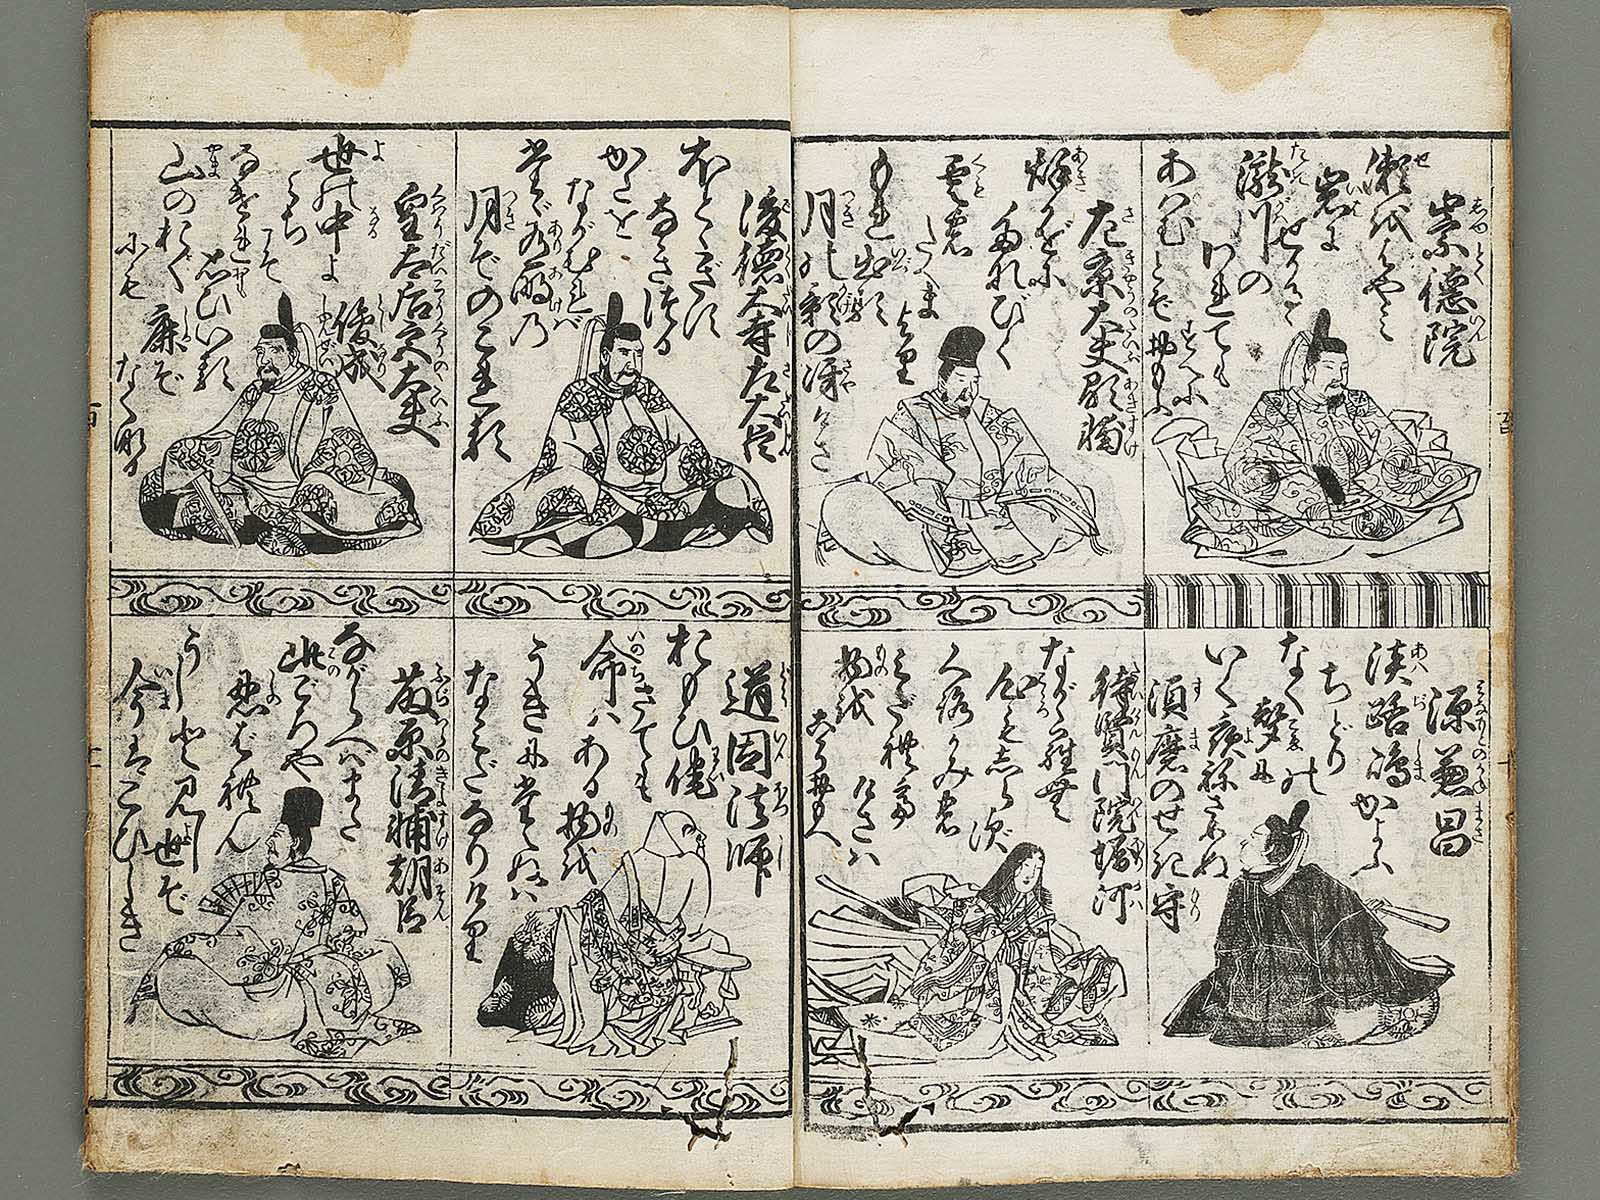 崇徳院
瀬をはやみ
岩に
せかるゝ
瀧川の
われても
すゑに
あはむとぞ思ふ
源兼昌
淡路嶋かよふ
ちどりの
なく聲に
いく夜ねざめぬ
須磨のせき守
左京大夫顕輔
秋風に
たなびく
雲の
たえま
より
もれ出る
月の影のさやけさ
待賢門院堀河
ながからむ
心もしらず
くろかみの
みだれて
けさは
物を
こそ思へ
後徳大寺左大臣
ほとゝぎす
なきつる
かたを
ながむれば
たゞ有明の
月ぞのこれる
道因法師
おもひ侘
さても
命はある物を
うきにたへぬは
なみだなりけり
皇太后宮大夫
俊成
世の中よ
みちこそ
なけれ
おもひいる
山のおく
にも
鹿ぞ
なくなる
藤原清輔朝臣
ながらへばまた
此ごろや
忍ばれん
うしと見し世ぞ
今はこひしき